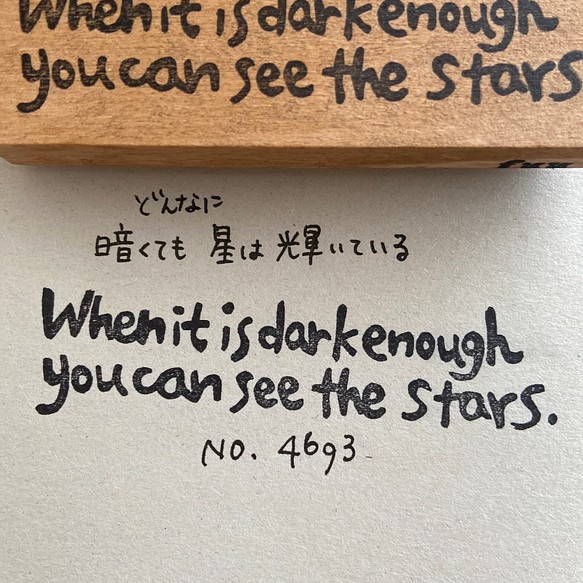 When it is dark enough
you can see the stars
どんなに
暗くても 星は 輝いている
When it is dark enough
you can see the stars.
NO. 4693